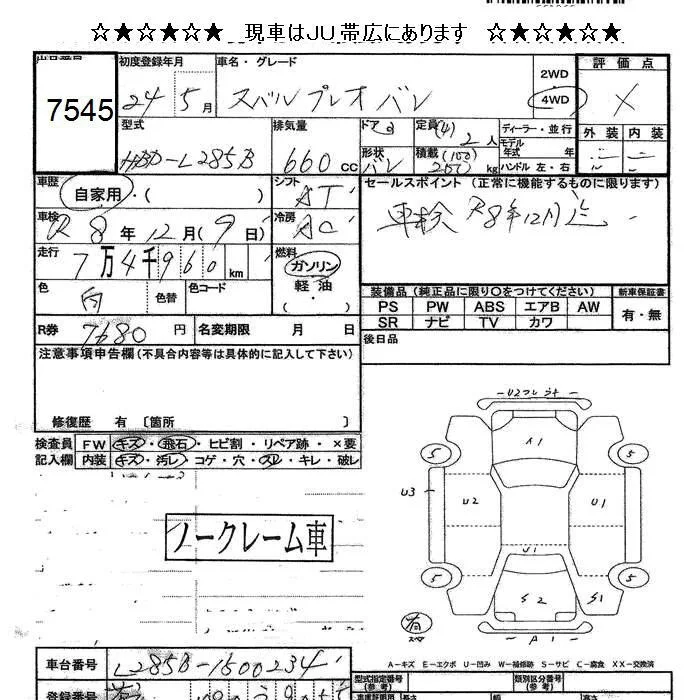 ☆★☆★★☆ 現車はＪＵ帯広にあります ☆★☆★★☆
7545
初度登録年月 車名・グレード 2WD 評価点
24 5月 スバル プレオ バン 4WD X
型式 排気量 ドア 定員(4) 2人 ディーラー・並行 外装 内装
HBD-L285B 660cc 3 形状 バン 積載(100) 200kg モデル年式 年 ハンドル 左・右
車歴 シフト セールスポイント (正常に機能するものに限ります)
自家用・( ) AT 車検R8年12月迄
車検 冷房
R8年12月(9日) AC
走行 燃料
7万4千960km ガソリン・軽油・( )
色 色替 色コード 装備品(純正品に限り〇をつけてください) 新車保証書
白 PS PW ABS エアB AW 有・無
SR ナビ TV カワ
R券 7680円 名変期限 月 日 後日品
注意事項申告欄(不具合内容等は具体的に記入して下さい)
修復歴 有 〔箇所 〕
検査員 FW キズ・飛石・ヒビ割・リペア跡・×要
記入欄 内装 キズ・汚レ・コゲ・穴・スレ・キレ・破レ
ノークレーム車
U2フレ
A1
5 5
U3 U2 U1
U1
5 5
S2 S1
有
A1
A－キズ E－エクボ U－凹み W－補修跡 S－サビ C－腐食 XX－交換済
車台番号 L285B-1500234 型式指定番号(参考) 類別区分番号(参考)
登録番号